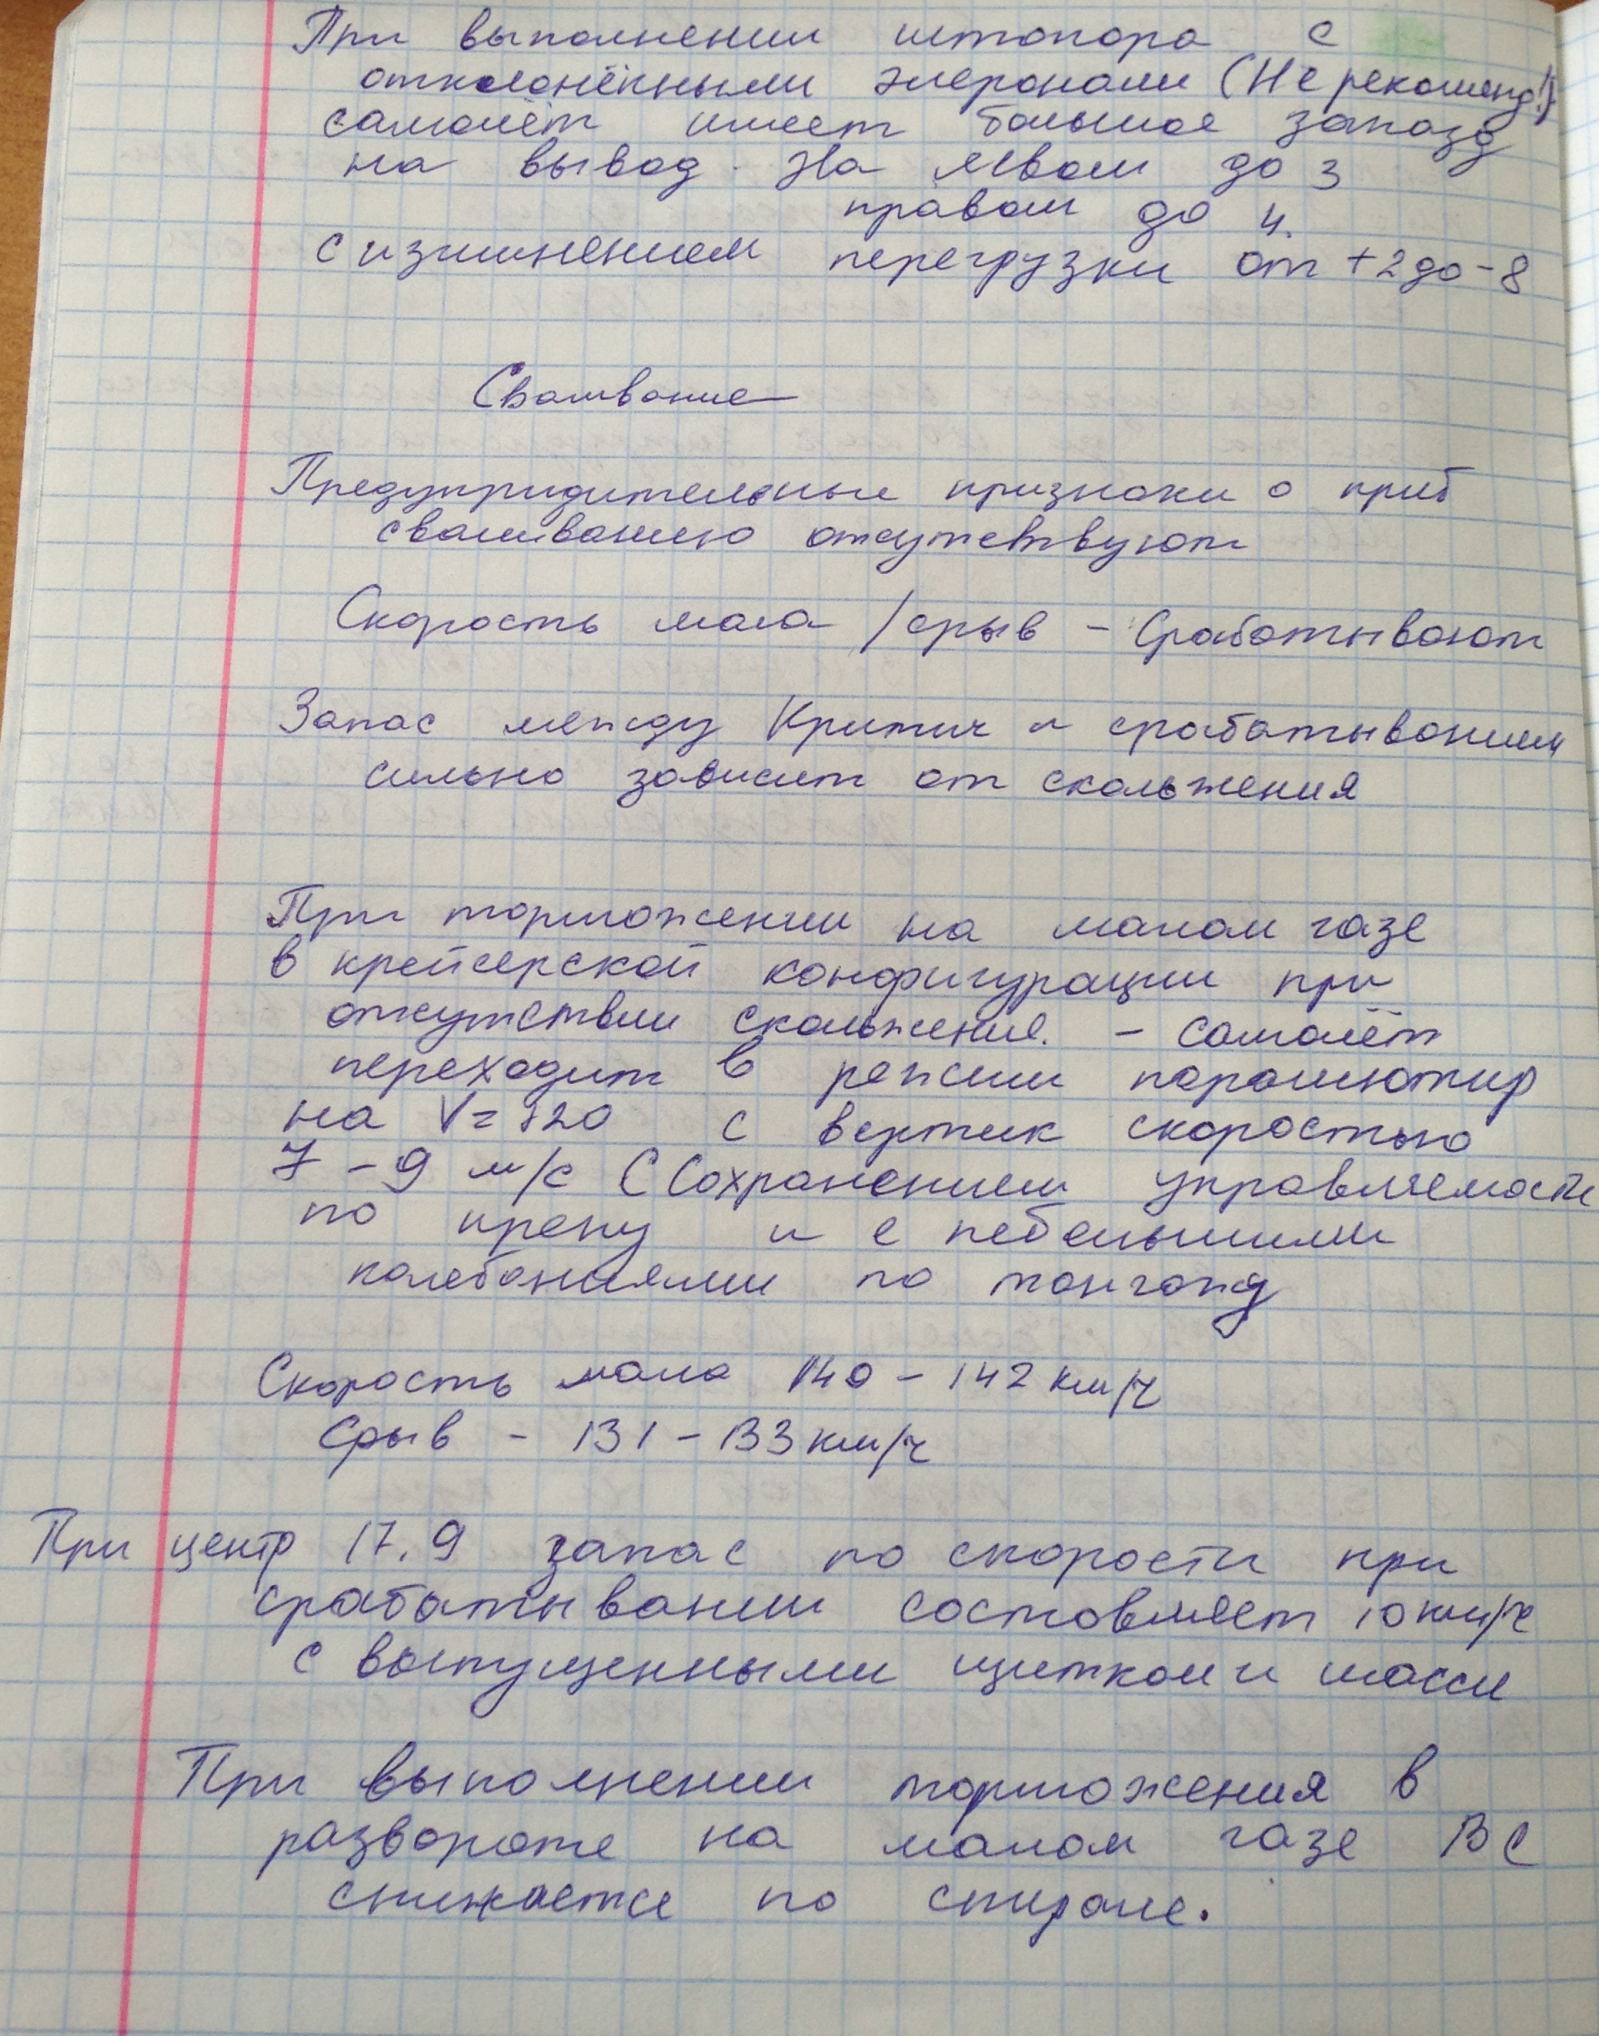 При выполнении штопора с
отклонёнными элеронами (Не рекоменд!)
самолёт имеет большое запазд
на вывод. На левом до 3
правом до 4.
с изминением перегрузки от +2 до -8
Сваливание
Предупридительные признаки о приб
сваливанию отсутствуют
Скорость мала / срыв - Срабатывают
Запас между Критич и срабатыванием
сильно зависит от скольжения
При торможении на малом газе
в крейсерской конфигурации при
отсутствии скольжения. - самолёт
переходит в режим парашютир
на V=120 с вертик скоростью
7 - 9 м/с (Сохранением управляемости
по крену и с небольшими
колебаниями по тангажу
Скорость мала 140 - 142 км/ч
Срыв - 131 - 133 км/ч
При центр 17.9 запас по скорости при
срабатывании составляет 10 км/ч
с выпущенными щитком и шасси
При выполнении торможения в
развороте на малом газе ВС
снижается по спирале.